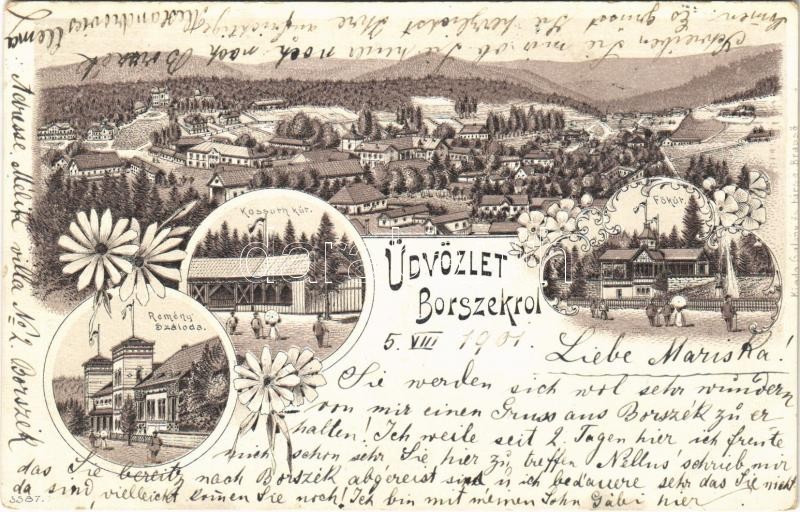 Kossuth kút.
Főkút.
Remény
Szálloda.
ÜDVÖZLET
Borszékről
5. VIII 1901.
Liebe Mariska!
Sie werden sich wol sehr wundern
von mir einen Gruss aus Borszék zu er
halten! Ich weile seit 2 Tagen hier ich freute
mich schon sehr Sie hier zu treffen Nellus schrieb mir
das Sie bereitz nach Borszék abgereist sind u ich bedauere sehr das Sie nicht
da sind, vielleicht komen Sie noch! Ich bin mit meinen Sohn Gábi hier.
Schreiben Sie mir ob Sie heuer noch nach Borszék
komen. Es grüsst Sie herzlichst Ihre aufrichtige
Ilema
Adresse. Malike villa No 2. Borszék
5587.